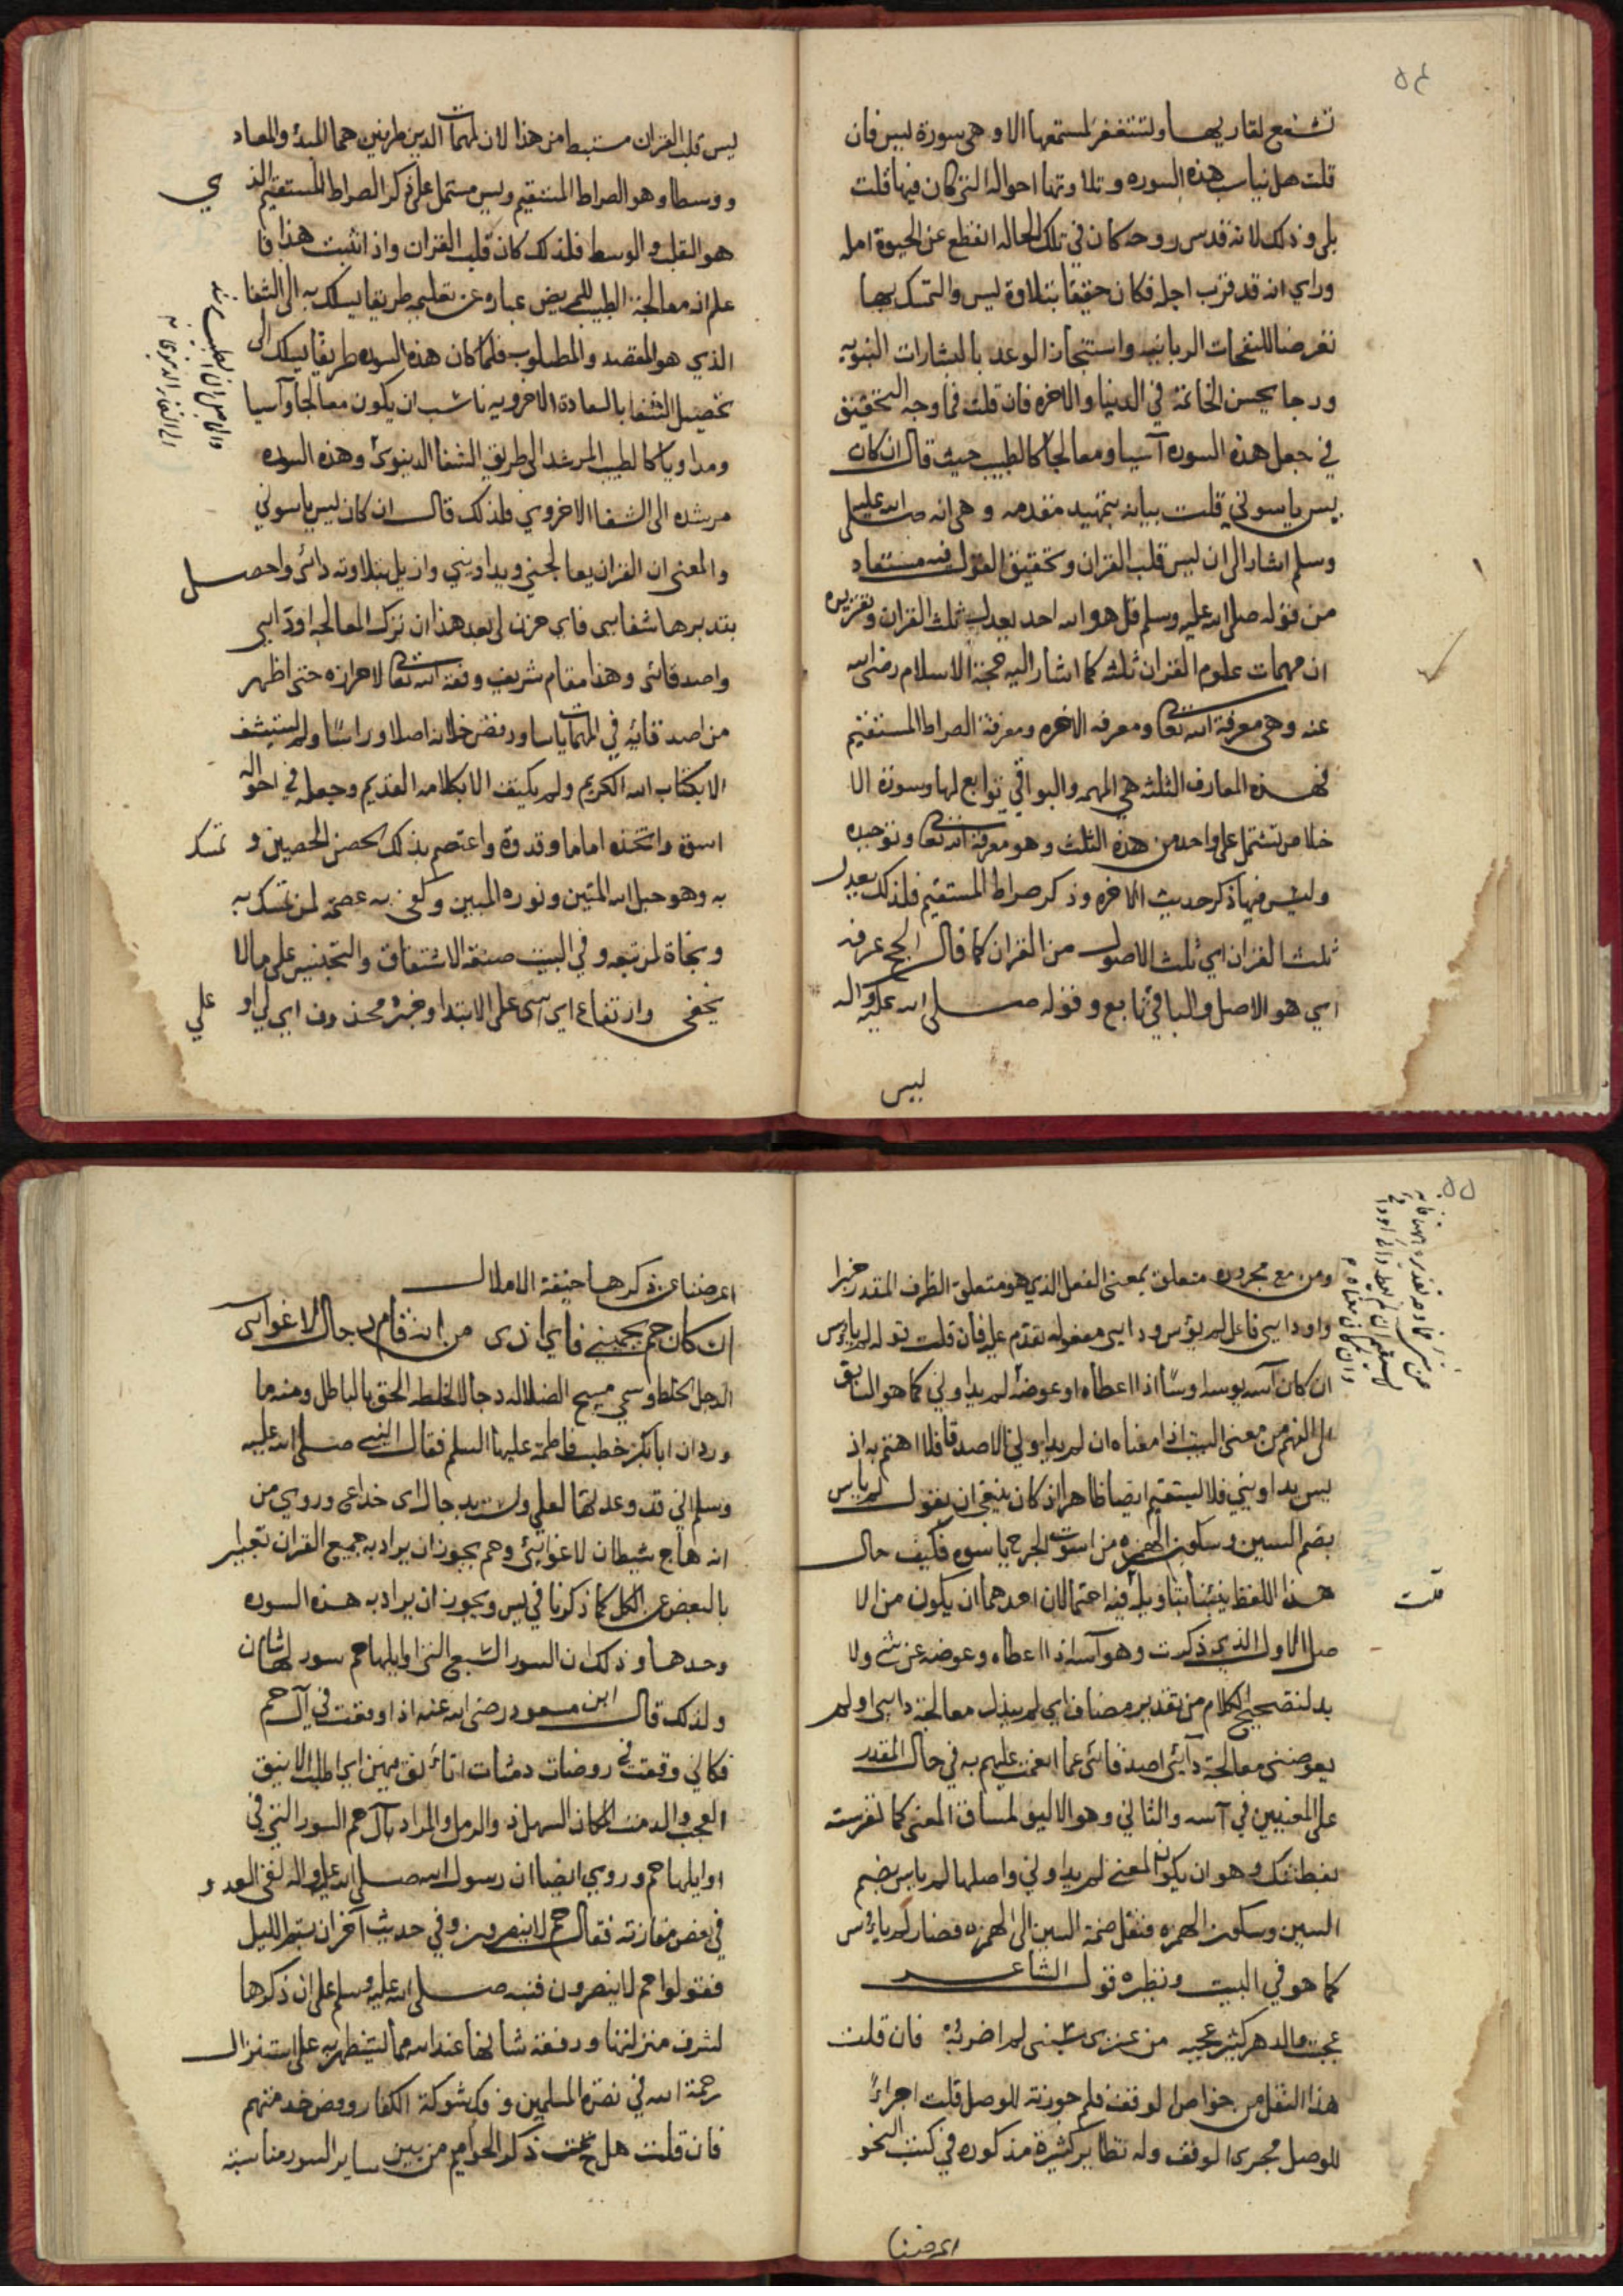 ٥٤
تشفع لقاريها ولتستغفر لمستمعها الا وهي سورة ليس فان
قلت هل يناسب هذه السوره وتلاوتها احواله التي كان فيها قلت
بلى وذلك لانه قدس روحه كان في تلك الحاله انقطع عن الحيوة امله
وراي انه قد قرب اجله فكان حقيقا بتلاوة ليس والتمسك بها
تعرضا للنفحات الربانيه واستنجاز الوعد بالبشارات النبويه
ورجا بحسن الخاتمة في الدنيا والاخره فان قلت فما وجه التحقيق
في جعل هذه السوره آسيا ومعالجا كالطبيب حيث قال ان كان
يس ياسوني قلت بيانه بتمهيد مقدمه وهي انه صلى الله عليه
وسلم اشار الى ان ليس قلب القران وتحقيق القول فيه مستفاد
من قوله صلى الله عليه وسلم قل هو الله احد يعدل ثلث القران وتقريره
ان مهمات علوم القران ثلثه كما اشار اليه حجة الاسلام رضي الله
عنه وهي معرفة الله تعا ومعرفه الاخره ومعرفة الصراط المستقيم
فهذه المعارف الثلثه هي المهمه والبواقي توابع لها وسورة الا
خلاص تشتمل على واحد من هذه الثلث وهو معرفة الله تعا وتوحيده
وليس فيها ذكر حديث الاخره وذكر صراط المستقيم فلذلك يعدل
ثلث القران اي ثلث الاصول من القران كما قال الحج عرفه
اي هو الاصل والباقي تابع وقوله صلى الله عليه واله
ليس
ليس قلب القران مستنبط من هذا لان لمهمات الدين طرفين هما المبدء والمعاد
ووسطا وهو الصراط المستقيم وليس مشتمل على ذكر الصراط المستقيم الذ
ي
هو القلب والوسط فلذلك كان قلب القران واذ اثبت هذا فا
علم ان معالجة الطبيب للمريض عباره عن تعليمه طريقا يسلك به الى الشفا
الذي هو المقصد والمطلوب فلما كان هذه السوره طريقا يسلك الى
تحصيل الشفا بالسعادة الاخرويه ناسب ان يكون معالجا وآسيا
ومداويا كالطبيب المرشد الى طريق الشفا الدنيوي وهذه السوره
مرشده الى الشفا الاخروي فلذلك قال ان كان ليس ياسوني
والمعنى ان القران يعالجني ويداويني وازيل بتلاوته دائى واحصل
بتدبرها شفايى فاى حزن لى بعد هذا ان ترك المعالجه اودايى
واصدقائى وهذا مقام شريف وفقه الله تعا لاحرازه حتى اظهر
من اصدقائه في المهمات ياسا ورفض خلانه اصلا وراسًا ولم يستشف
الا بكتاب الله الكريم ولم يكتف الا بكلامه القديم وجعله في احواله
اسوة واتخذه اماما وقدوة واعتصم بذلك الحصن الحصين وتمسك
به وهو حبل الله المتين ونوره المبين وكفى به عصمة لمن تمسك به
ونجاة لمن تبعه وفي البيت صنعة الاشتقاق والتجنيس على مالا
يخفى وارتفاع اي شى على الابتدا وخبره محذوف اي لي او
علي
٥٥
ومن مع مجروره متعلق بمعنى الفعل الذي هو متعلق الظرف المقدر خبرا
واودايى فاعل لم يؤس ودايى مفعوله تقدم عليه فان قلت قوله لم ياؤس
ان كان آسه يوسه اوسًا اذا اعطاه او عوضه لم يداوني كما هو السابق
الى الفهم من معنى البيت اذ معناه ان لم يداوني الاصدقا فلا اهتم به اذ
ليس يداويني فلا يستقيم ايضا ظاهرا اذ كان ينبغي ان يقول لم ياس
بضم السين وسكون الهمزه من اسوت الجرح ياسوه فكيف حال
هذا اللفظ بيننا بتاويله فيه احتمالان احدهما ان يكون من الا
قلت
صل الاول الذي ذكرت وهو آسه اذا اعطاه وعوضه عن شي ولا
بد لتصحيح الكلام من تقدير مضاف اي لم يبذل معالجة دايى اولم
يعوضني معالجة دآئي اصدقائى عما انعمت عليهم به في حال المقدر
على المعنيين في آسه والثاني وهو الاليق لمساق المعنى كما تفرست
بفطنتك وهو ان يكون المعنى لم يداوني واصلها لم ياس بضم
السين وسكون الهمزه فنقل ضمة السين الى الهمزه فصار لم ياؤس
كما هو في البيت ونظيره قول الشاعر
عجبت والدهر كثير عجبه من عنزى سبنى لم اضربه فان قلت
هذا النقل من خواص الوقف فلم جوزته للوصل قلت اجراءً
للوصل مجرى الوقف وله نظاير كثيرة مذكوره في كتب النحو
اعرضنا
اعرضنا عن ذكرها خيفة الاملال
ان كان حم يحميني فاى اذى من انه قام دجال لاغوايى
الدجل الخلط وسمي مسيح الضلاله دجالا لخلطه الحق بالباطل ومنه ما
ورد ان ابا بكر خطب فاطمة عليها السلم فقال النبي صلى الله عليه
وسلم اني قد وعدتها لعلي ولست بدجال اى خداعى وروي من
انه هاج شيطان لاغوايئ وحم يجوز ان يراد به جميع القران تعبيرا
بالبعض عن الكل كما ذكرنا في يس ويجوز ان يراد به هذه السوره
وحدها وذلك ان السور السبع التي اوايلها حم سور لها شان
ولذلك قال ابن مسعود رضي الله عنه اذا وقعت في آل حم
فكاني وقعت في روضات دمثات اتانق فيهن اي اطلب الانيق
العجب والدمث المكان السهل ذو الرمل والمراد بآل حم السور التي في
اوايلها حم وروي ايضا ان رسول الله صلى الله عليه واله لقى العدو
في بعض مغازيه فقال حم لا ينصرون وفي حديث آخر ان بيتم الليل
فقولوا حم لا ينصرون فنبه صلى الله عليه وسلم على ان ذكرها
لشرف منزلتها ورفعة شانها عند الله مما يستظهر به على استنزال
رحمة الله في نصرة المسلمين وفل شوكة الكفار وفض خدمتهم
فان قلت هل تحت ذكر الحواميم من بين ساير السور مناسبة